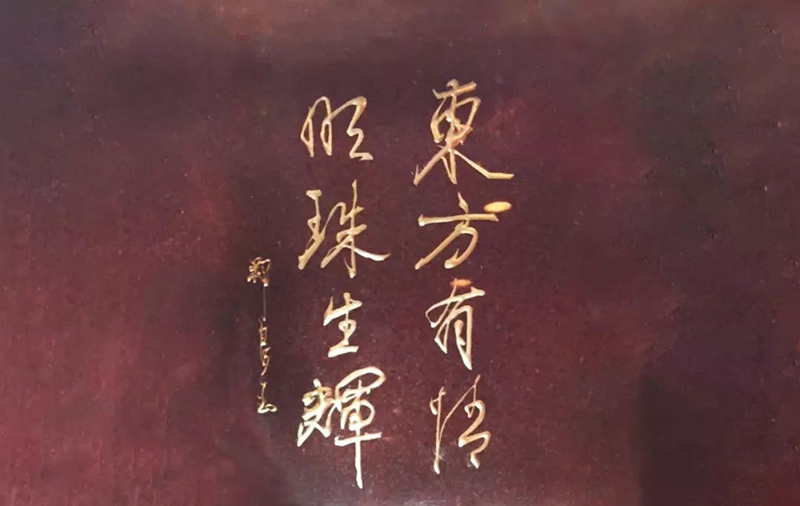 東方有情
明珠生輝